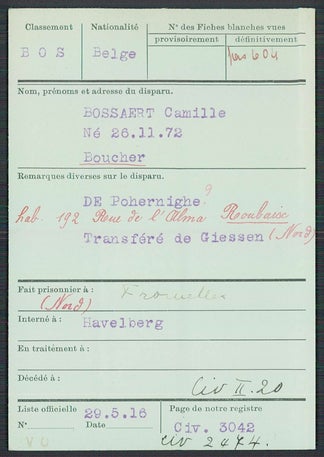 Classement
Nationalité
Nos des Fiches blanches vues
provisoirement
définitivement
B O S
Belge
pas 604
Nom, prénoms et adresse du disparu.
BOSSAERT Camille
Né 26.11.72
Boucher
Remarques diverses sur le disparu.
DE Pohernighe
hab. 192 Rue de l'Alma Roubaix
Transféré de Giessen (Nord)
Fait prisonnier à :
(Nord)
Interné à :
Havelberg
En traitement à :
Décédé à :
Civ II. 20
Liste officielle
Page de notre registre
N° Date 29.5.16
Civ. 3042
civ 2474.